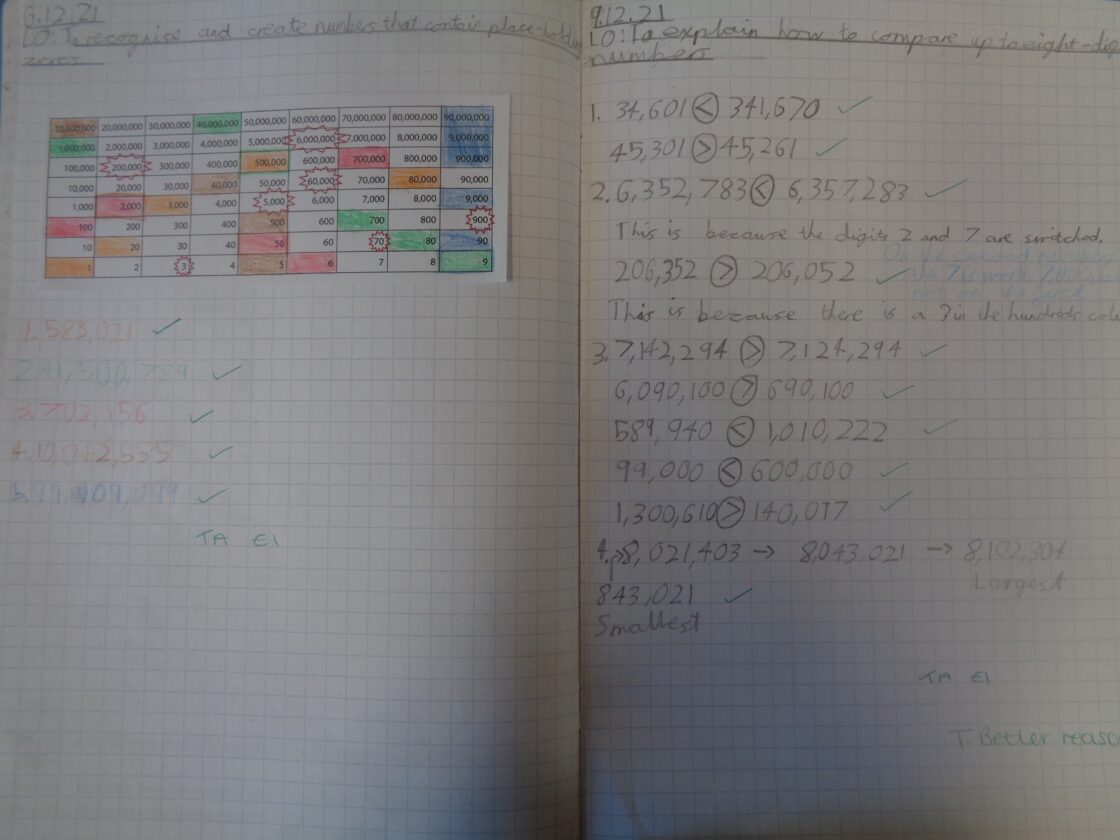 8.12.21
LO: To recognise and create numbers that contain place-holding
zeros
10,000,000 20,000,000 30,000,000 40,000,000 50,000,000 60,000,000 70,000,000 80,000,000 90,000,000
1,000,000 2,000,000 3,000,000 4,000,000 5,000,000 6,000,000 7,000,000 8,000,000 9,000,000
100,000 200,000 300,000 400,000 500,000 600,000 700,000 800,000 900,000
10,000 20,000 30,000 40,000 50,000 60,000 70,000 80,000 90,000
1,000 2,000 3,000 4,000 5,000 6,000 7,000 8,000 9,000
100 200 300 400 500 600 700 800 900
10 20 30 40 50 60 70 80 90
1 2 3 4 5 6 7 8 9
1. 583,021
2. 41,500,789
3. 702,156
4. 10,042,555
5.
TA EI
9.12.21
LO: To explain how to compare up to eight-dig
numbers
1. 34,601 < 341,670
45,301 > 45,261
2. 6,352,783 < 6,357,283
This is because the digits 2 and 7 are switched.
In the second number
the 7 is worth 7,000
not in the first
206,352 > 206,052
This is because there is a 3 in the hundreds colu
3. 7,142,294 > 7,124,294
6,090,100 > 690,100
589,940 < 1,010,222
99,000 < 600,000
1,300,610 > 140,017
4. 8,021,403 → 8,043,021 → 8,102,304
Largest
843,021
Smallest
TA EI
T: Better reaso